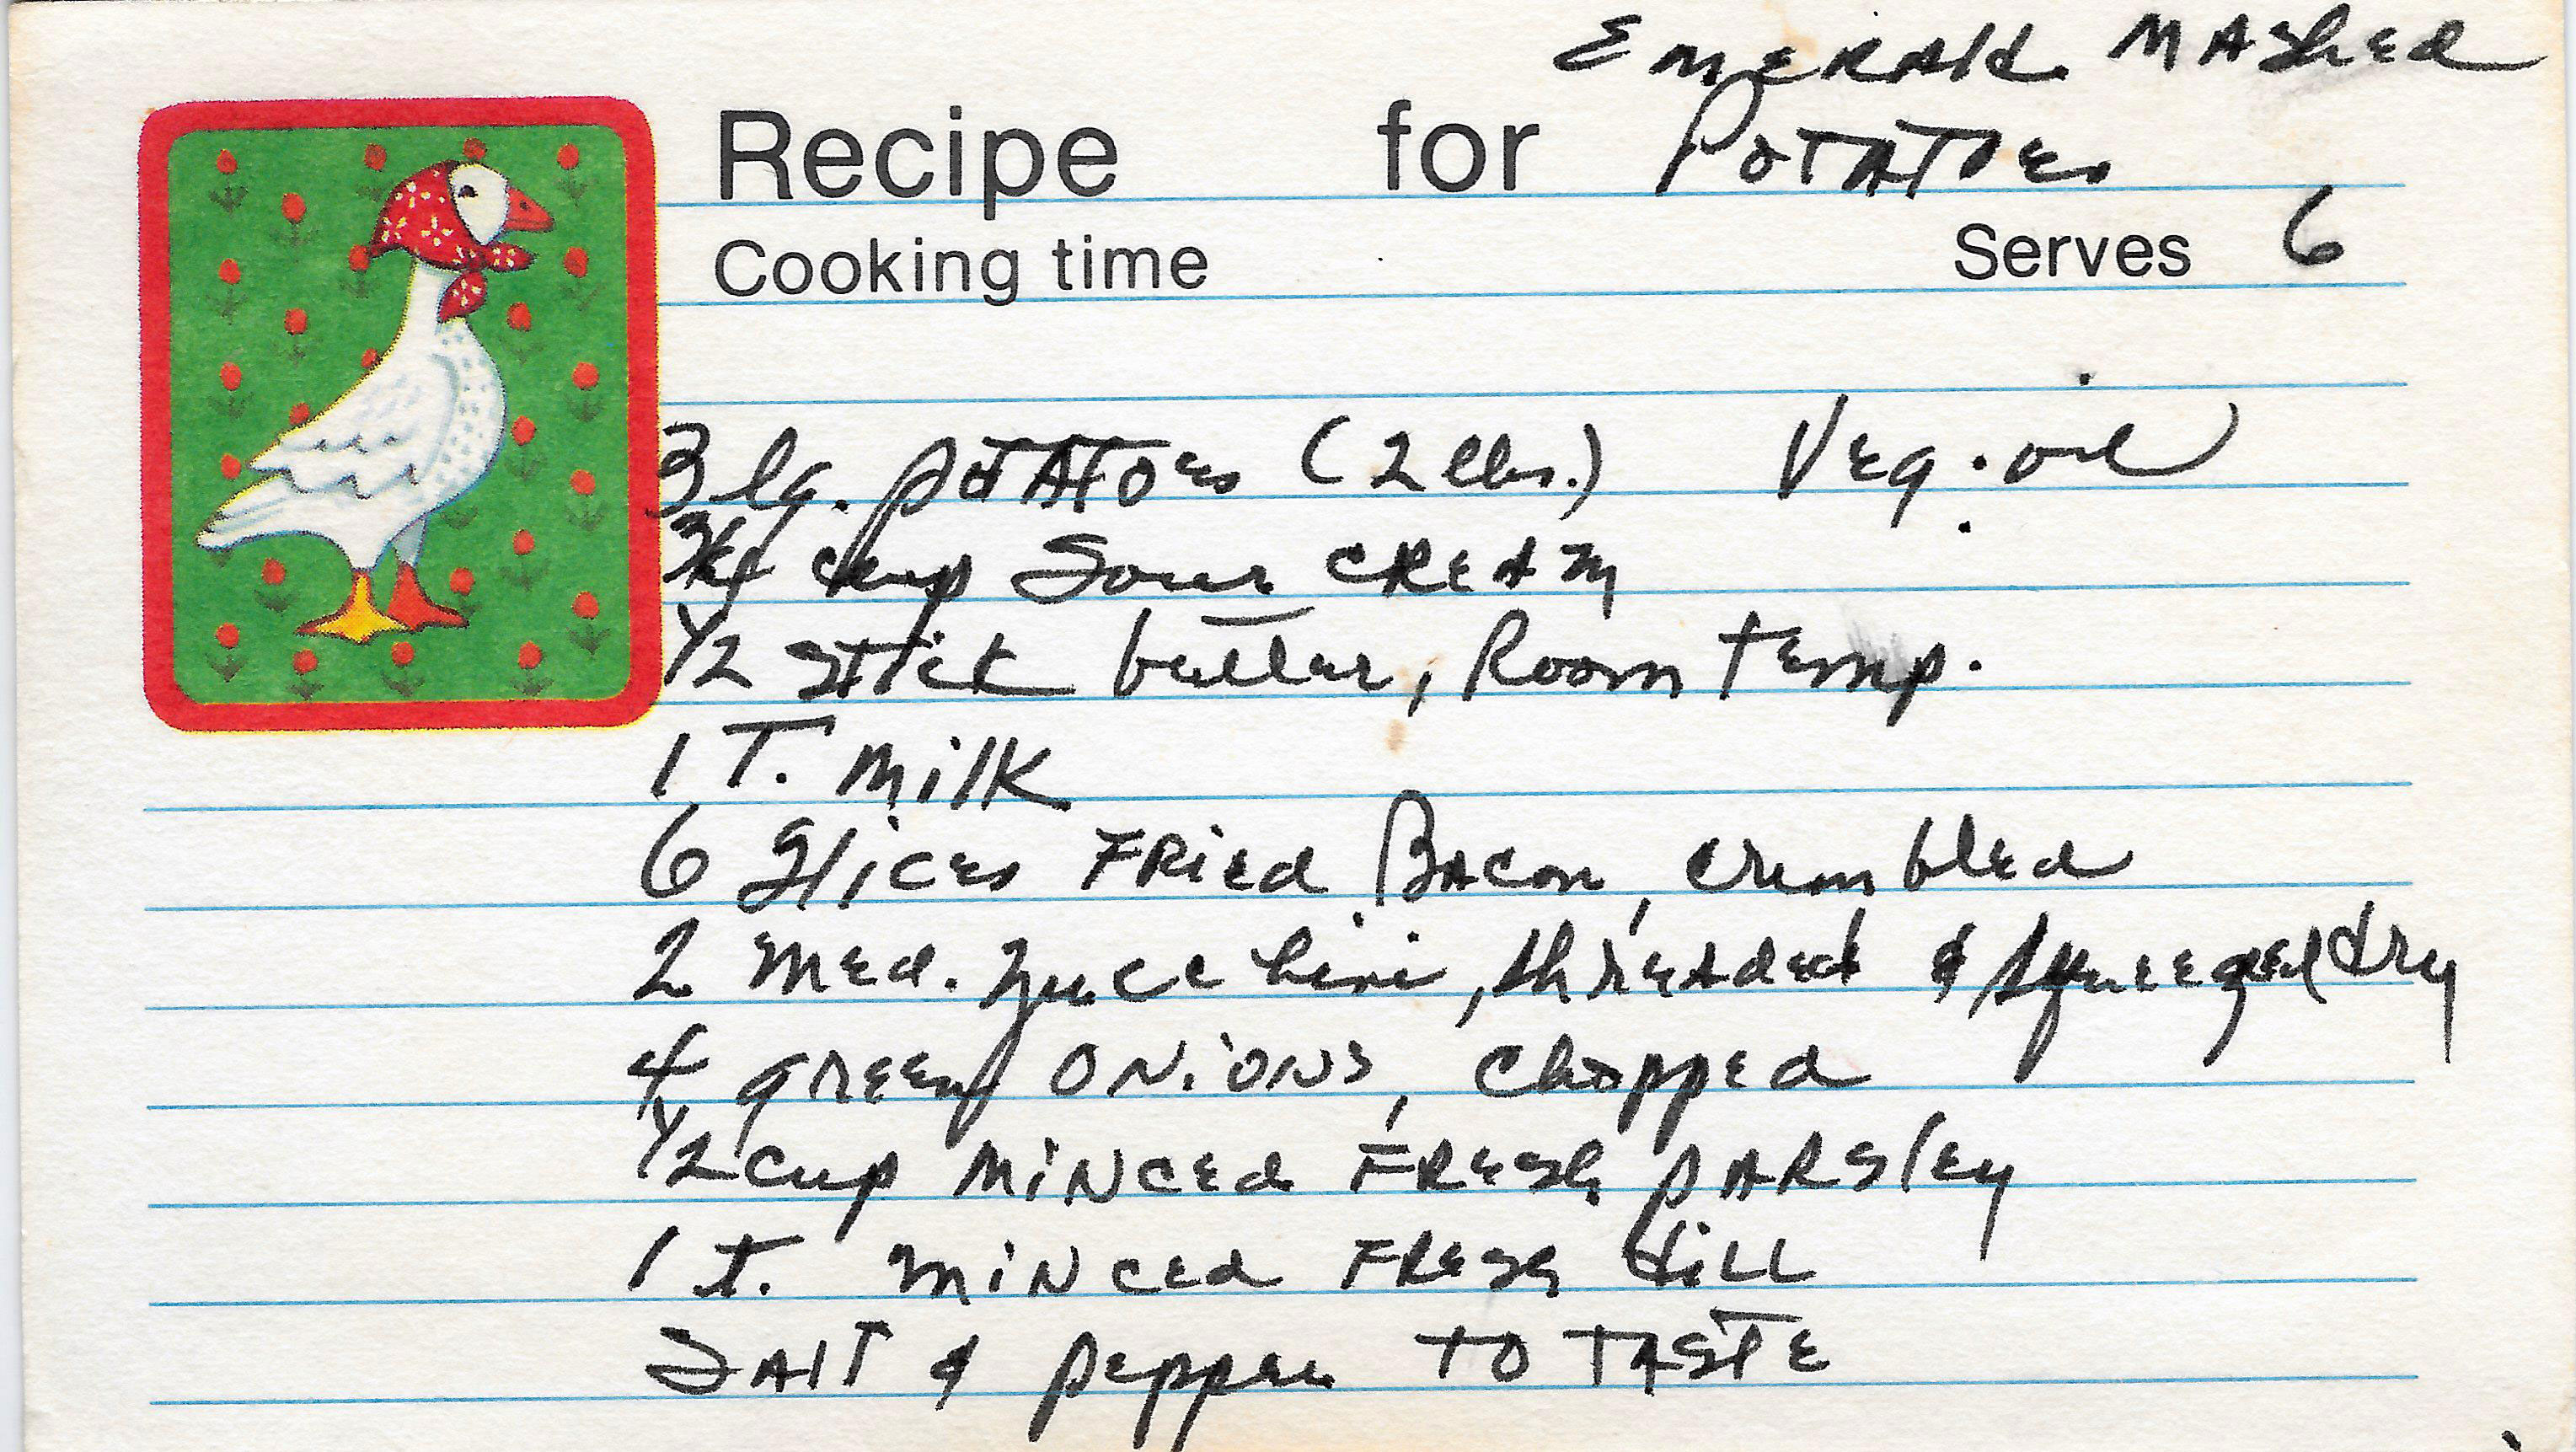 Emerald Mashed
Recipe for Potatoes
Cooking time Serves 6
3 lg. potatoes (2 lbs.) Veg. oil
3/4 cup Sour CREAM
1/2 stick butter, Room temp.
1 T. Milk
6 Slices FRied Bacon, crumbled
2 Med. Zucchini, shredded & squeezed dry
4 green ONiONS, chopped
1/2 cup MiNced FResh PARsley
1 t. MiNced FResh dill
SAlT & pepper TO TASTE